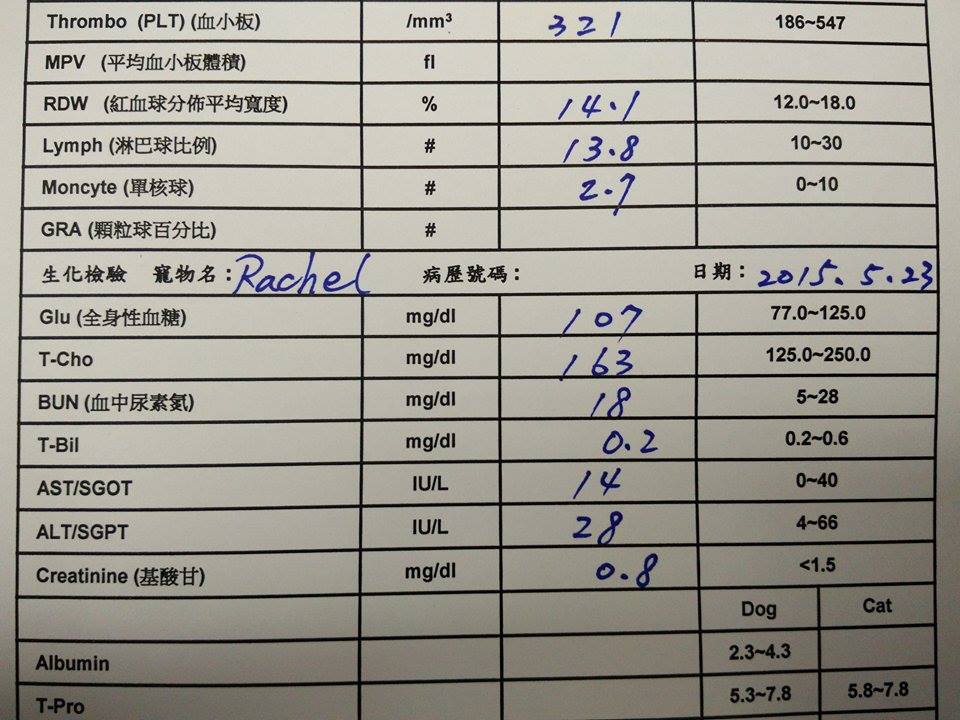 Thrombo (PLT) (血小板) /mm³ 321 186~547
MPV (平均血小板體積) fl
RDW (紅血球分佈平均寬度) % 14.1 12.0~18.0
Lymph (淋巴球比例) # 13.8 10~30
Moncyte (單核球) # 2.7 0~10
GRA (顆粒球百分比) #
生化檢驗 寵物名：Rachel 病歷號碼： 日期：2015.5.23
Glu (全身性血糖) mg/dl 107 77.0~125.0
T-Cho mg/dl 163 125.0~250.0
BUN (血中尿素氮) mg/dl 18 5~28
T-Bil mg/dl 0.2 0.2~0.6
AST/SGOT IU/L 14 0~40
ALT/SGPT IU/L 28 4~66
Creatinine (基酸甘) mg/dl 0.8 <1.5
Dog Cat
Albumin 2.3~4.3
T-Pro 5.3~7.8 5.8~7.8